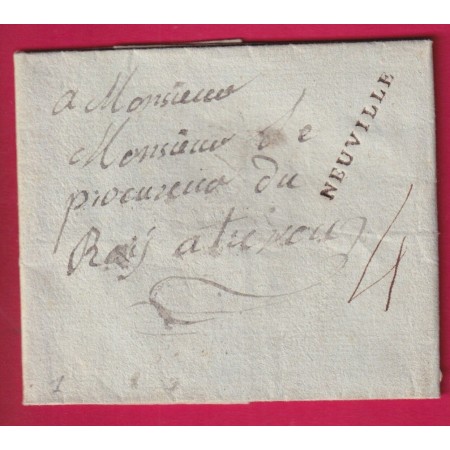 a Monsieur
Monsieur le
procureur du
Roy a
NEUVILLE
4
1